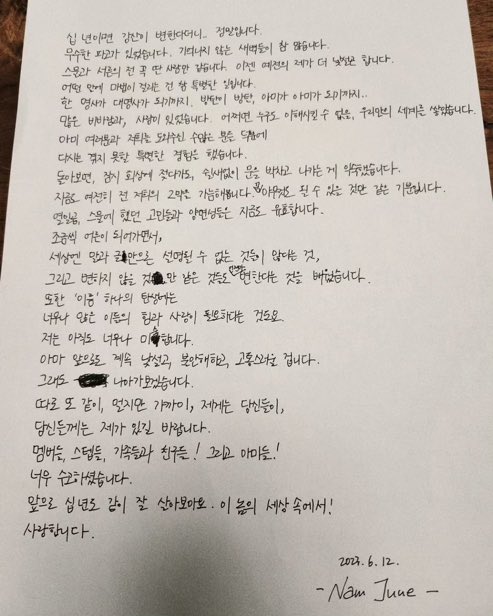 십 년이면 강산이 변한다더니.. 정말입니다.
무수한 파고가 있었습니다. 기억나지 않는 새벽들이 참 많습니다.
스물과 서른의 전 꼭 딴 사람만 같습니다. 이젠 예전의 제가 더 낯설곤 합니다.
어떤 말에 마법이 걸리는 건 참 특별한 일입니다.
한 명사가 대명사가 되기까지. 방탄이 방탄, 아미가 아미가 되기까지..
많은 비바람과, 사랑이 있었습니다. 어쩌면 누구도 이해시킬 수 없을, 우리만의 세계를 살았습니다.
아미 여러분과 저희를 도와주신 수많은 분들 덕분에
다시는 겪지 못할 특별한 경험을 했습니다.
돌아보면, 잠시 회상에 젖다가도, 쉼없이 문을 박차고 나가는 게 익숙했습니다.
지금도 여전히 전 저희의 2막을 가늠해봅니다 아무것도 될 수 있을 것만 같은 기분입니다.
열일곱, 스물에 했던 고민들과 양면성들은 지금도 유효합니다.
조금씩 어른이 되어가면서,
세상엔 말과 글만으론 설명될 수 없는 것들이 많다는 것,
그리고 변하지 않을 것만 같은 것들도 변한다는 것을 배웠습니다.
또한 '이름' 하나의 탄생에는
너무나 많은 이들의 힘과 사랑이 필요하다는 것도요.
저는 아직도 너무나 미합니다.
아마 앞으로도 계속 낯설고, 불안해하고, 고통스러울 겁니다.
그래도 나아가보겠습니다.
따로 또 같이, 멀지만 가까이, 제게는 당신들이,
당신들께는 제가 있길 바랍니다.
멤버들, 스텝들, 가족들과 친구들! 그리고 아미들!
너무 수고하셨습니다.
앞으로 십 년도 같이 잘 살아보아요. 이 놈의 세상 속에서!
사랑합니다.
2023. 6. 12.
- Nam June -